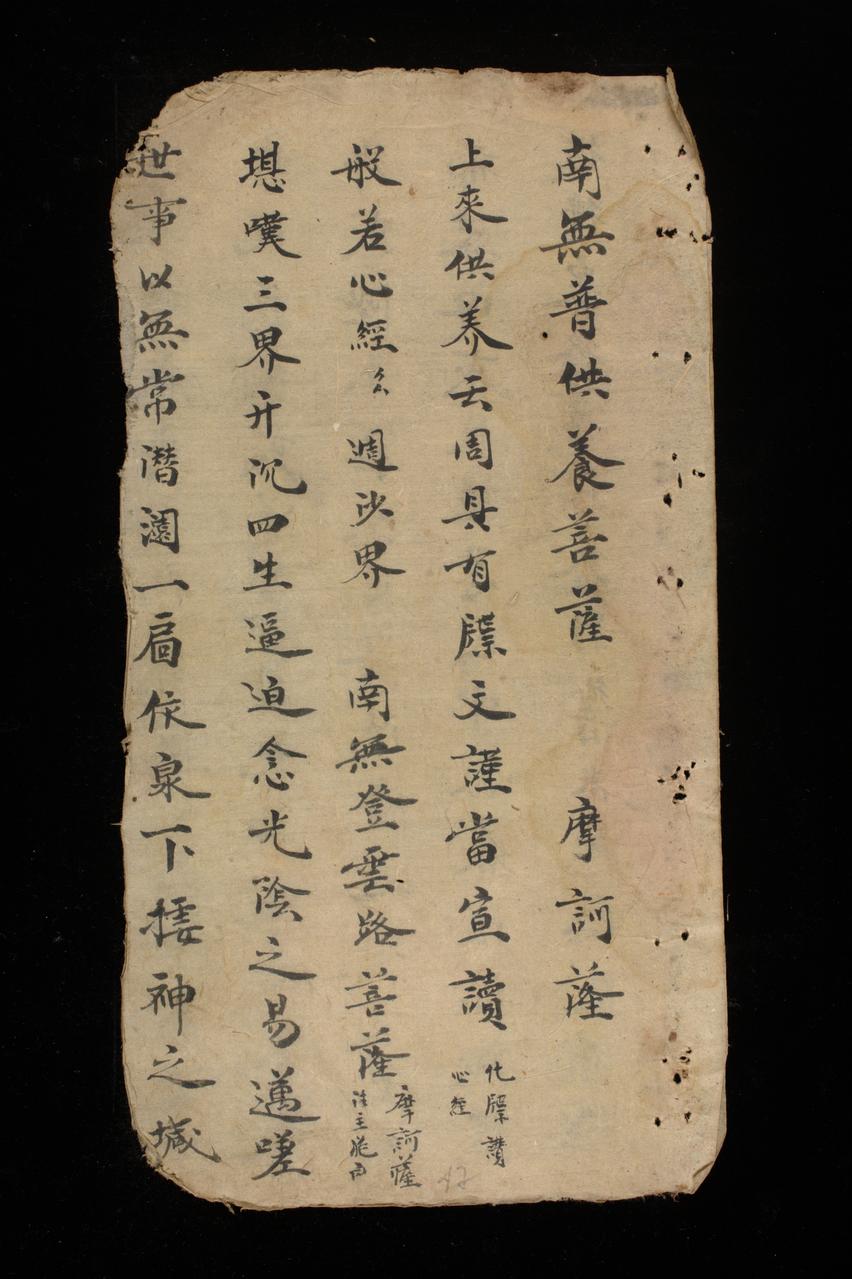 南無普供養菩薩 摩訶薩
上來供养云周具有牒文謹當宣讀 化牒讚 心經
般若心經 週沙界 南無登雲路菩薩 摩訶薩
堪嘆三界升沉四生逼迫念光陰之易邁嗟
世事以無常潜 一扄依泉下捿神之堿